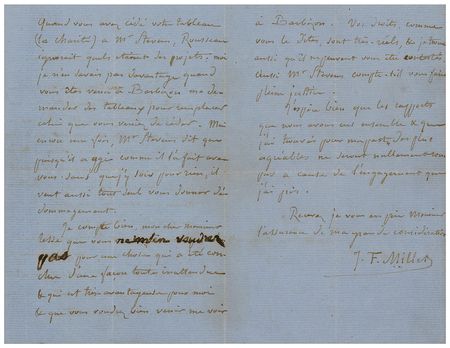 Quand vous avez cédé votre tableau
(la charité) a Mr Stevens, Rousseau
ignorait quels étaient ses projets. moi
je n'en savais pas davantage quand
vous êtes venu à Barbizon me de-
mander des tableaux pour remplacer
celui que vous veniez de céder. Mais
encore une fois, Mr Stevens dit que
puisqu'il a agi comme il l'a fait avec
vous sans que j'y sois pour rien, il
veut aussi tout seul vous donner dé-
dommagement.
Je compte bien, mon cher monsieur
que vous ne m'en voudrez
pas pour une chose qui a été con-
clue d'une façon toute inattendue
& qui est très avantageuse pour moi
& que vous voudrez bien venir me voir
à Barbizon. Vos droits, comme
vous le dites, sont très-réels, & je trouve
aussi qu'ils ne peuvent vous être contestés
Aussi Mr Stevens compte-t-il vous faire
pleine justice.
J'espère bien que les rapports
que nous avons eus ensemble & que
j'ai trouvés pour ma part des plus
agréables ne seront nullement rom-
pus à cause de l'engagement que
j'ai pris.
Recevez, je vous en prie Monsieur
l'assurance de ma grande considération
J. F. Millet